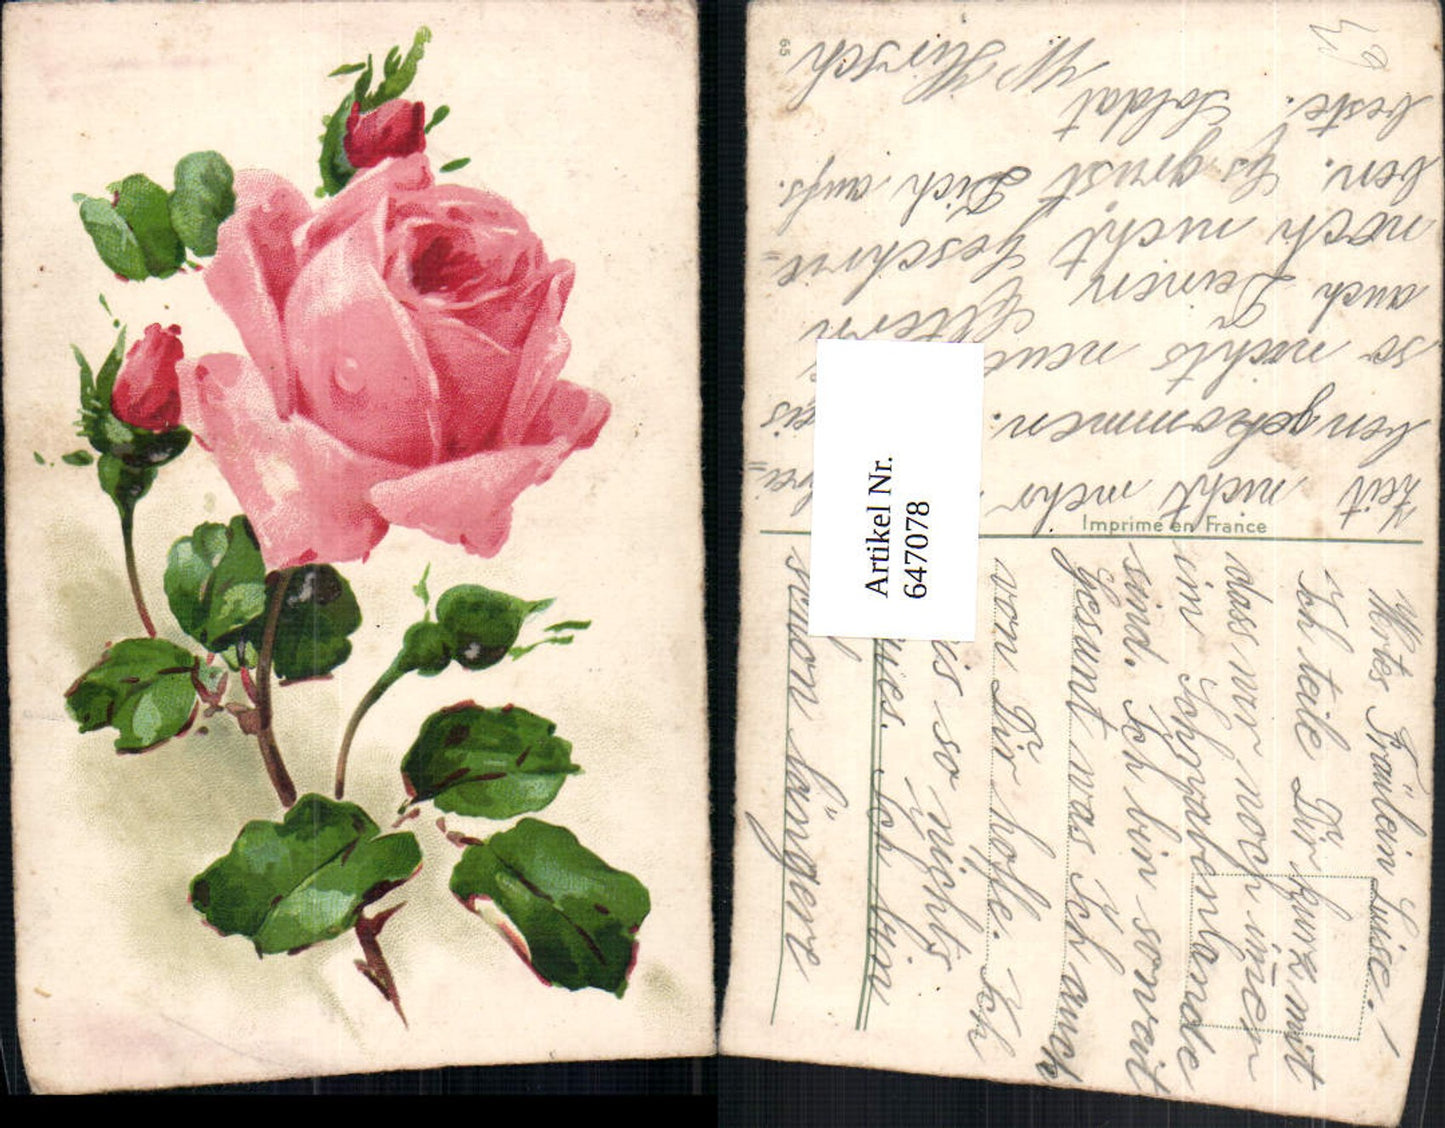 Wertes Fräulein Luise!
Ich teile Dir kurz mit
dass wir noch im̄er
im Schüzabenlande
sind. Ich bin soweit
Gesunt was Ich auch
von Dir hoffe. Ich
so nichts
Ich bin
schon längere
Zeit nicht mehr
ben gekommen.
so nichts neues Eltern
auch Deinen
noch nicht geschrie=
ben. Es grüst Dich aufs.
beste. Soldat
W Hirsch
Imprimé en France
65
Artikel Nr.
647078